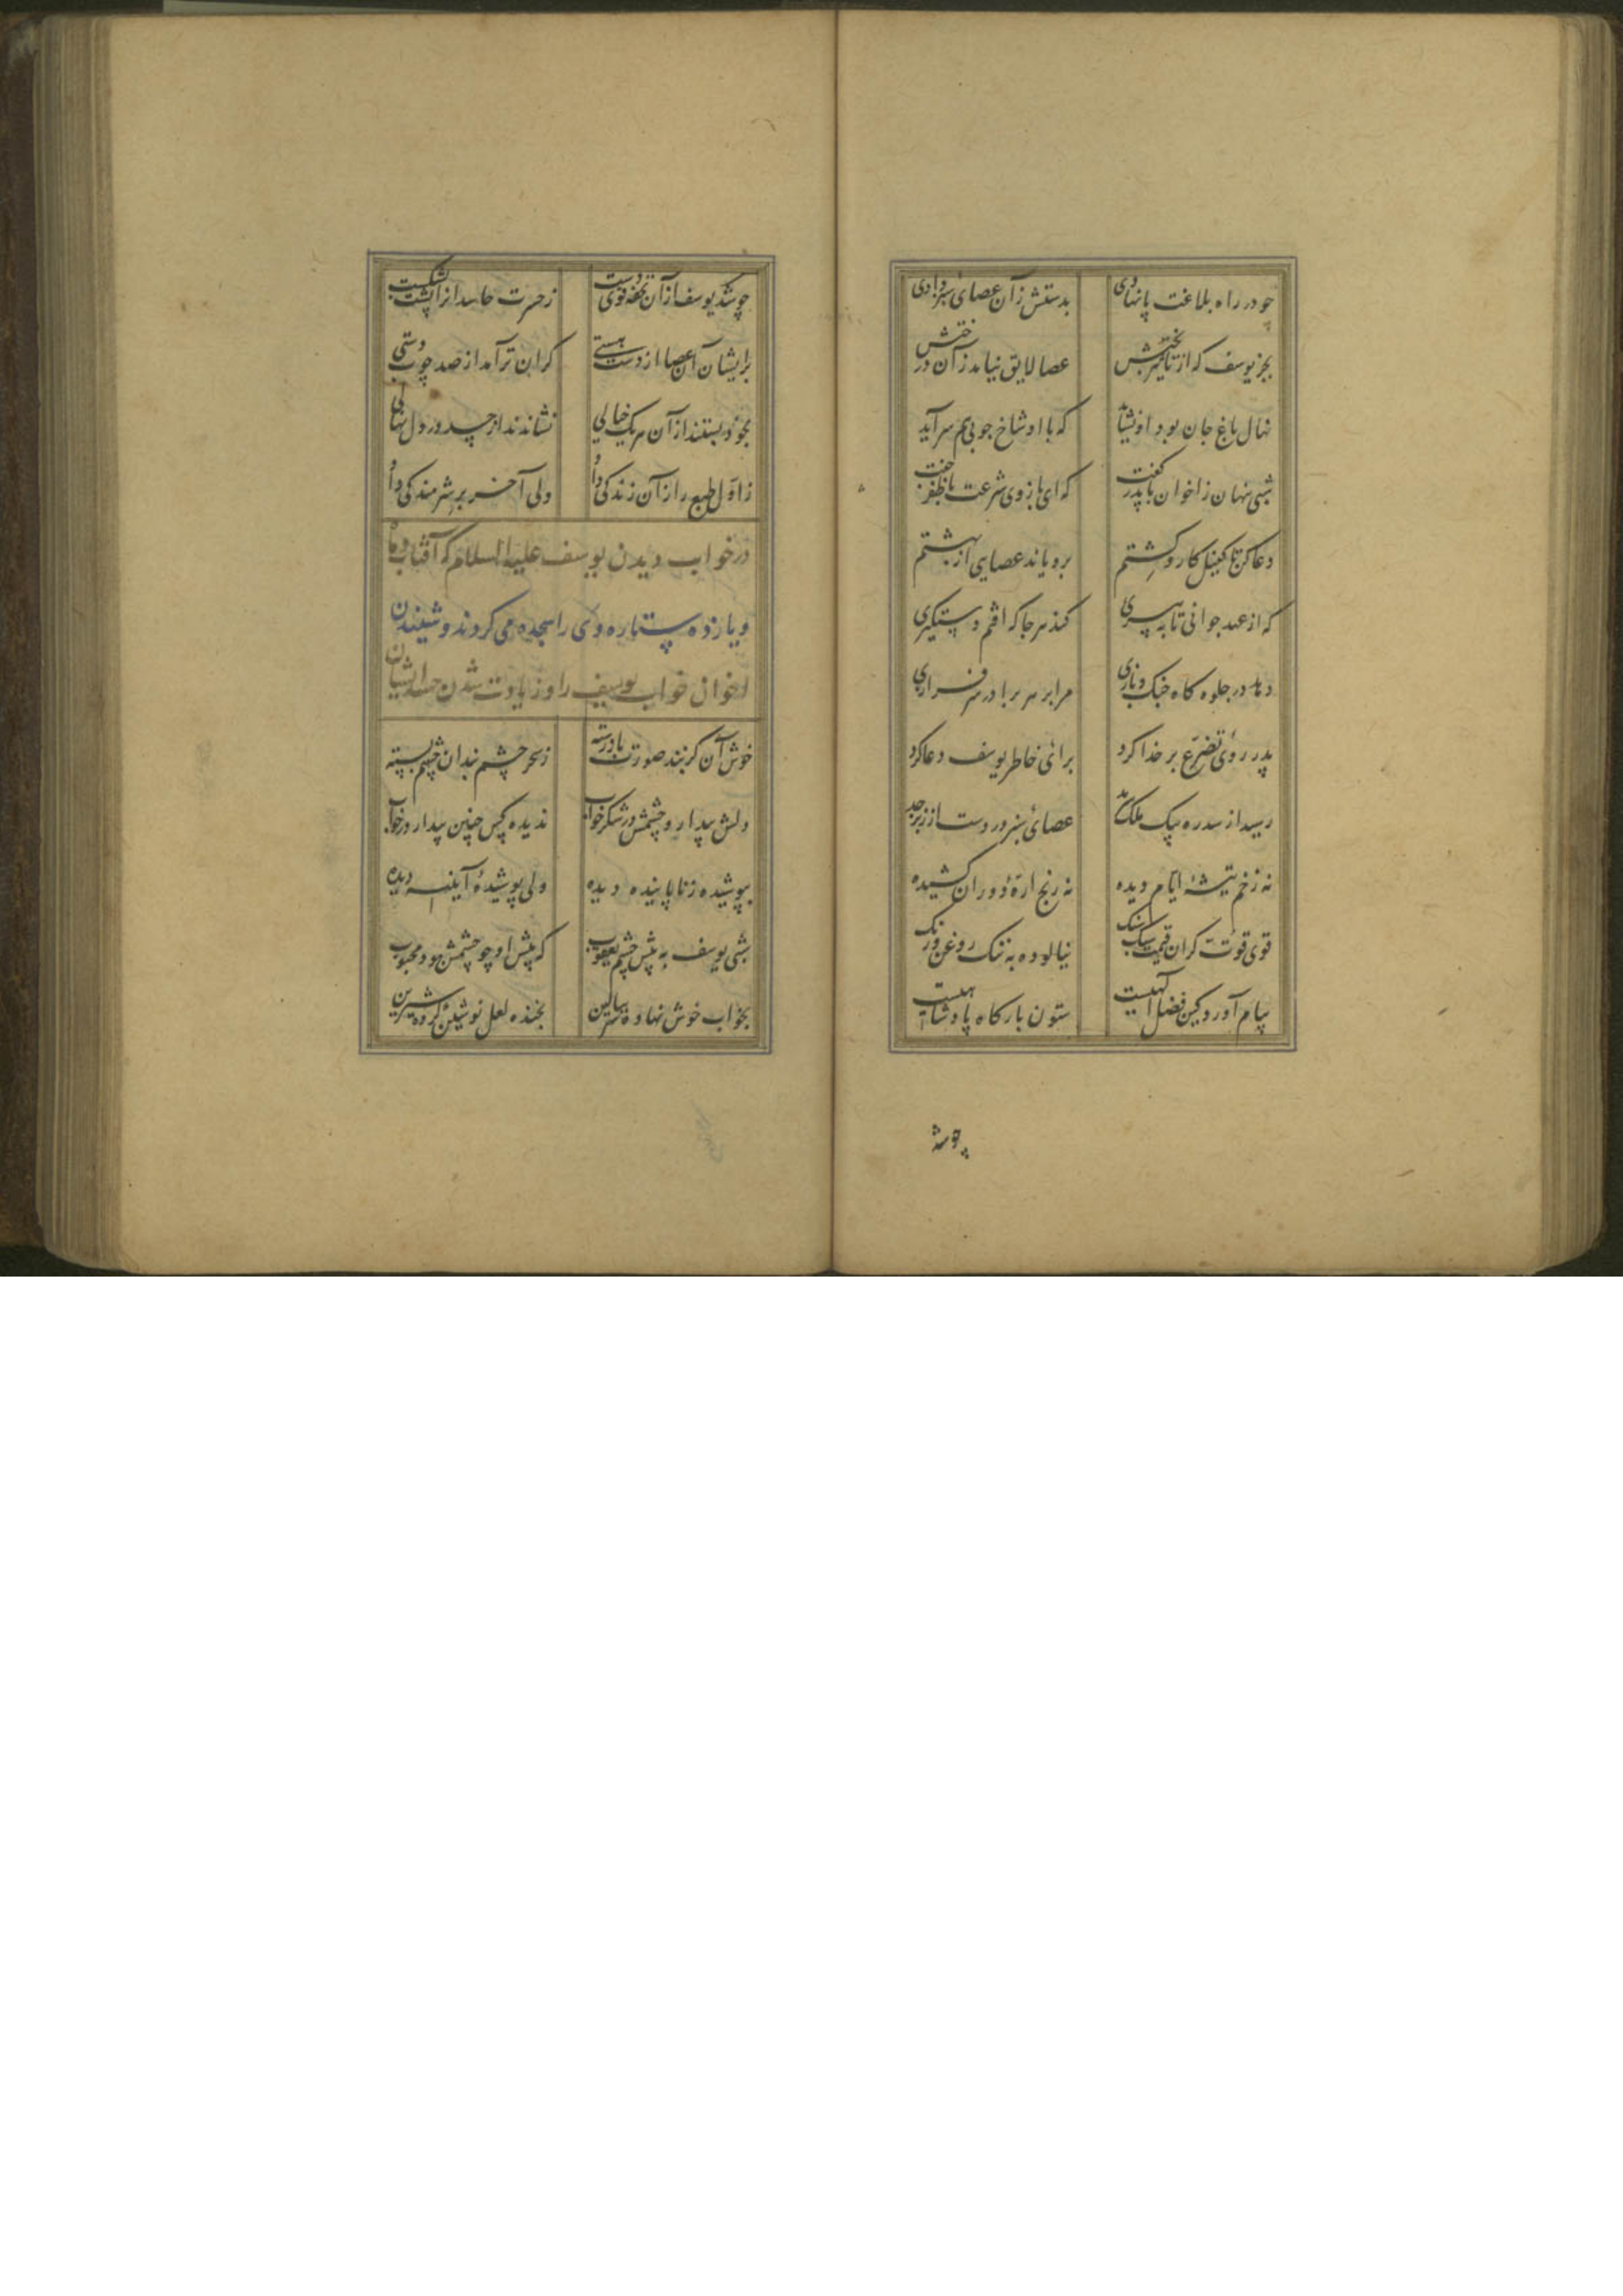 چو در راه بلاغت پا نهادی بدستش زآن عصای سبز دادی
بجز یوسف که از تاثیر بختش عصا لایق نیامد زآن درختش
نهال باغ جان بود او نشاید که با او شاخ چوبی هم سر آید
شبی پنهان ز اخوان با پدر گفت که ای بازوی شرعت با ظفر جفت
دعا کن تا کفیل کار و کشتم برویاند عصایی از بهشتم
که از عهد جوانی تا به پیری کند هر جا که افتم دستگیری
دهد در جلوه کاه جنک و بازی مرا بر هر برادر سرفرازی
پدر روی تضرع بر خدا کرد برای خاطر یوسف دعا کرد
رسید از سدره پیک ملک سرمد عصای سبز در دست از زبرجد
نه زخم تیشهٔ ایام دیده نه رنج ارهٔ دوران کشیده
قوی قوت کران قیمت سبک سنک نیالوده به ننک روغن و رنک
پیام آورد کین فضل الهیست ستون بارکاه پادشاهیست
چو شد
چو شد یوسف از آن تحفه قوی دست ز حسرت حاسدانرا پشت بشکست
برایشان آن عصا از دست هستی کران تر آمد از صد چوب دستی
بخود بستند از آن هریک خیالی نشاندند از حسد در دل نهالی
ز اول طبع را زآن زندکی داد ولی آخر بر شرمندکی داد
در خواب دیدن یوسف علیه السلام که آفتاب و ماه
و یازده ستاره وی را سجده می کردند و شنیدن
اخوان خواب یوسف را و زیادت شدن حسد ایشان
خوش آن کز بند صورت باز رسته ز سحر چشم بندان چشم بسته
دلش بیدار و چشمش در شکر خواب ندیده کس چنین بیدار در خواب
بپوشیده ز ناپاینده دیده ولی پوشیده آینده دیده
شبی یوسف به پیش چشم یعقوب که پیش او چو چشمش بود محبوب
بخواب خوش نهاده سر ببالین بخنده لعل نوشین کرده شیرین